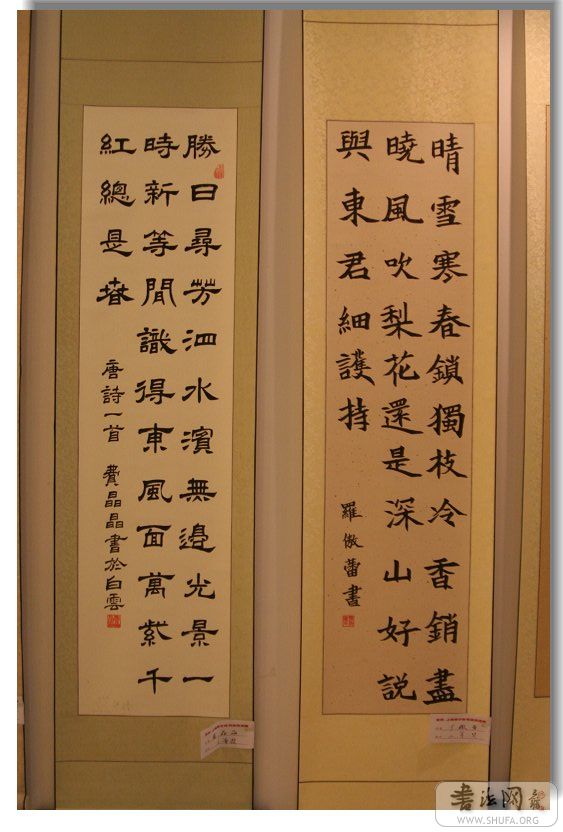 晴雪寒春鎖獨枝冷香銷盡
曉風吹梨花還是深山好説
與東君細護持
羅傲蕾書
勝日尋芳泗水濱無邊光景一
時新等閒識得東風面萬紫千
紅總是春
唐詩一首 費晶晶書於白雲
書法网
WWW.SHUFA.ORG